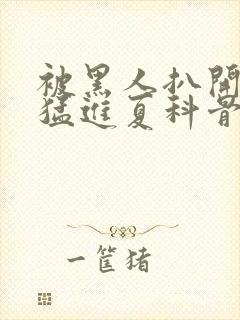 被黑人扒開
猛進夏科普
一筐猪